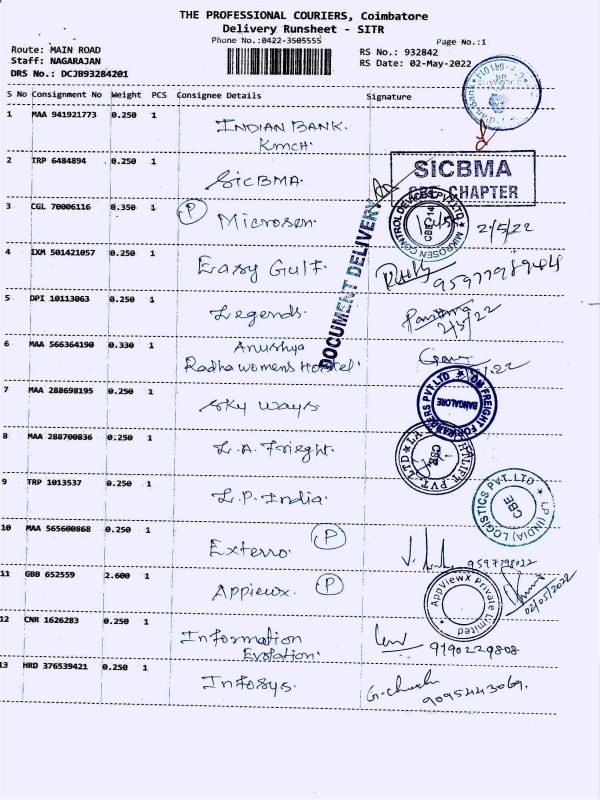 THE PROFESSIONAL COURIERS, Coimbatore
Delivery Runsheet - SITR
Phone No.:0422-3505555 Page No.:1
Route: MAIN ROAD RS No.: 932842
Staff: NAGARAJAN RS Date: 02-May-2022
DRS No.: DCJB93284201
S No Consignment No Weight PCS Consignee Details Signature
1 MAA 941921773 0.250 1 INDIAN BANK.
KMCH.
2 TRP 6484894 0.250 1 SICBMA.
SICBMA
CBE CHAPTER
3 CGL 70006116 0.350 1 P Microsen. 2/5/22
MIKROSEN CONTROL DEVICES PVT LTD
CBE - 14
DOCUMENT DELIVERY
4 IXM 501421057 0.250 1 Easy Gulf.
5 DPI 10113063 0.250 1 Legends. 2/5/22
6 MAA 566364190 0.330 1 Anushya
Radha womens Hostel.
7 MAA 288698195 0.250 1 Sky ways
OM FREIGHT FORWARDERS PVT. LTD
BANGALORE
8 MAA 288700836 0.250 1 L.A. Frieght.
CBE
9 TRP 1013537 0.250 1 L.P. India.
LP (INDIA) LOGISTICS PVT. LTD
CBE
10 MAA 565600868 0.250 1 Exterro. P 9597798022
11 GBB 652559 2.600 1 Appiewx. P 02/05/2022
AppViewX Private Limited
12 CNR 1626283 0.250 1 Information
Evolation. 9190229808
13 HRD 376539421 0.250 1 Infosys. 9095443069.